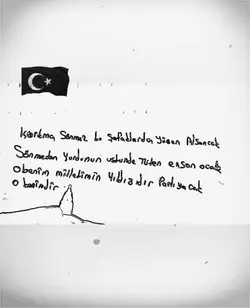 Korkma, Sönmez bu Şafaklarda Yüzen Alsancak
Sönmeden Yurdunun üstünde Tüten ensan ocak
O benim milletimin Yıldızıdır Parlıyacak
O benimdir